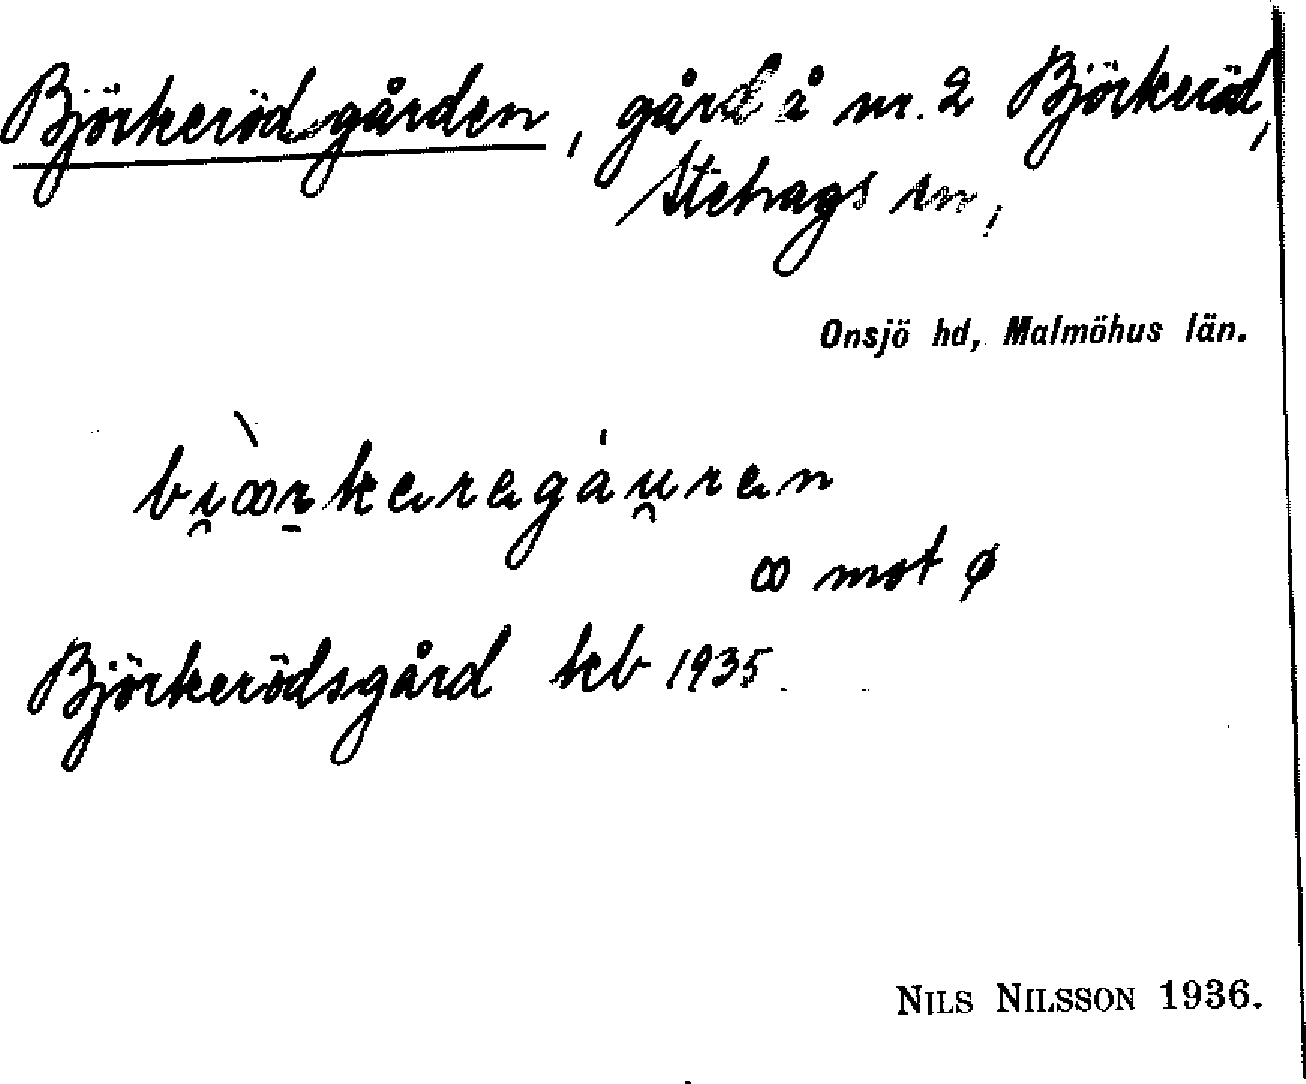 Björkerödgården, gård å nr. 2 Björkeröd,
Stehags sn,
Onsjö hd, Malmöhus län.
bi̯ꝏ̀r̠keregáu̯ren
ꝏ mot ø
Björkerödsgård kb 1935
NILS NILSSON 1936.